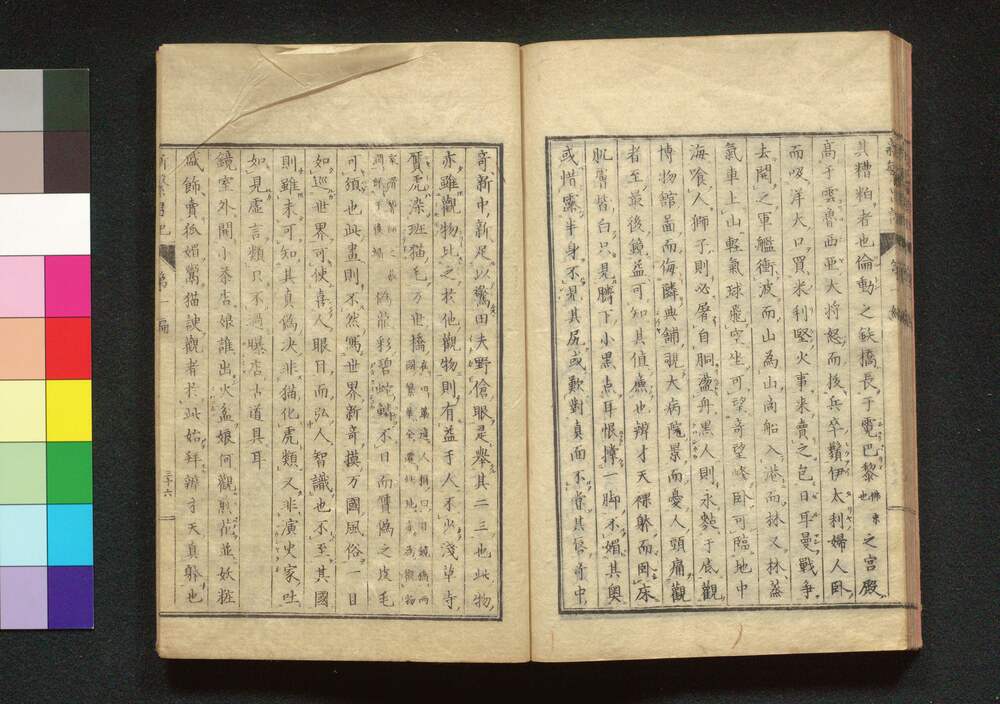 其糟粕者也倫動之鉄橋長于竜巴黎佛京也之宮殿
高于雲魯西亜大将怒而抜兵卒鬚伊太利婦人臥
而吸洋犬口買米利堅火事来賣之包日耳曼戰争
去鬨之軍艦衝波而山為山商船入港而林又林蒸
氣車上山軽氣球飛空坐可望奇望峰臥可臨地中
海喰人獅子則必屠自胴盪舟黒人則永
于底觀
博物館畾而侮隣典舖覗大病院景而憂人頭痛觀
者至最後鏡益可知其値廉也辨才天裸躰而臥床
肌膚皆白只見臍下小黒点耳恨擡一脚不媚其奥
或惜露半身不見其尻或歎對真面不嘗其唇奇中
奇新中新足以驚田夫野傖眼是舉其二三也此物
亦雖觀物比之於他觀物則有益于人不少淺草寺
贋虎染斑猫毛万世橋
偽龍彩碧蛇鱗不日而贋偽之皮毛
可須也此畫則不然寫世界新奇摸万國風俗一日
如巡世界可使喜人眼目而弘人智識也不至其國
則雖未可知其真偽决非猫化虎類又非演史家吐
如見虚言類只不過曝店古道具耳
鏡室外開小茶店娘誰出火盆娘何觀
並妖粧
戚飾賣狐媚鬻猫諛觀者於此始拜辨才天真躰也
新繁昌記
第一編
三十六